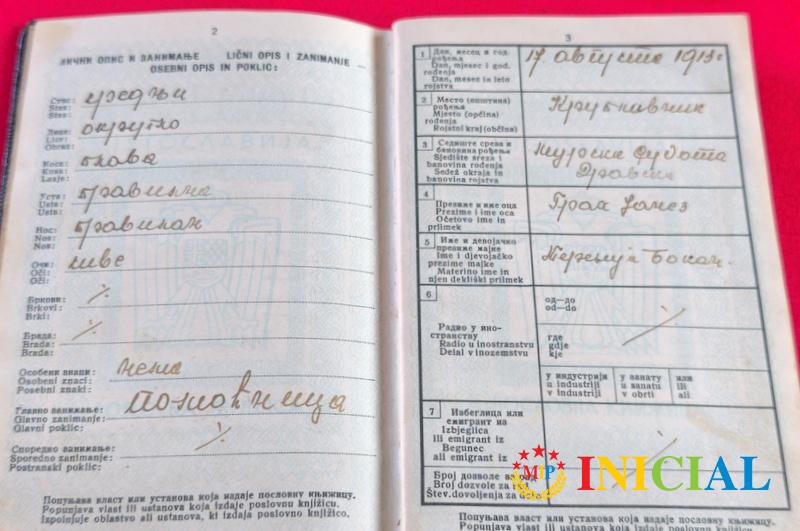 2
ЛИЧНИ ОПИС И ЗАНИМАЊЕ LIČNI OPIS I ZANIMANJE
OSEBNI OPIS IN POKLIC:
Стас: средњи
Stas:
Stas:
Лице: округло
Lice:
Obraz:
Коса: плава
Kosa:
Lasje:
Уста: правилна
Usta:
Usta:
Нос: правилан
Nos:
Nos:
Очи: сиве
Oči:
Oči:
Бркови: ·/.
Brkovi:
Brki:
Брада: ·/.
Brada:
Brada:
Особени знаци: нема
Osobeni znaci:
Posebni znaki:
Главно занимање: послоћница
Glavno zanimanje:
Glavni poklic:
Споредно занимање: ·/.
Sporedno zanimanje:
Postranski poklic:
Попуњава власт или установа која издаје пословну књижицу.
Popunjava vlast ili ustanova koja izdaje poslovnu knjižicu.
Izpolnjuje oblastvo ali ustanova, ki izdaja poslovno knjižico.
3
1 Дан, месец и год. рођења 17 августа 1913
Dan, mjesec i god. rođenja
Dan, mesec in leto rojstva
2 Место (општина) рођења
Mjesto (općina) rođenja
Rojstni kraj (občina)
3 Седиште среза и бановина рођења Мурска Субота
Sjedište sreza i banovina rođenja Дравска
Sedež okraja in banovina rojstva
4 Презиме и име оца
Prezime i ime oca
Očetovo ime in priimek
5 Име и девојачко презиме мајке
Ime i djevojačko prezime majke
Materino ime in njen dekliški priimek
6 Радио у иностранству
Radio u inostranstvu
Delal v inozemstvu
од—до
od—do
·/.
где
gdje
kje
у индустрији у занату или
u industriji u zanatu ili
v industriji v obrti ali
7 Избеглица или емигрант из ·/.
Izbjeglica ili emigrant iz
Begunec ali emigrant iz
Број дозволе за рад
Broj dozvole za rad
Štev. dovoljenja za delo
MP INICIAL
Попуњава власт или установа која издаје пословну књижицу.